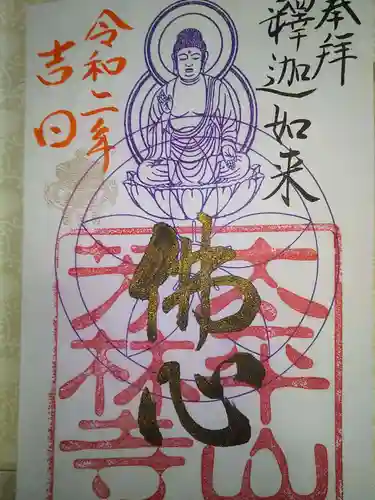 奉拝
釋迦如来
令和二年
吉日
佛心
太平山
林寺